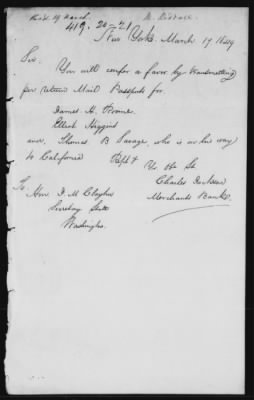 Rec'd 19 March
419. 20-21
New York. March 17 1849
Sir.
You will confer a favor by transmitting
per return Mail Passports for.
James H.
Higgins
and, Thomas B Savage, who is on his way
to California Resply
Yr Ob St
Charles
Merchants Bank
To
Hon. J. M Clayton
Secretary State
Washington